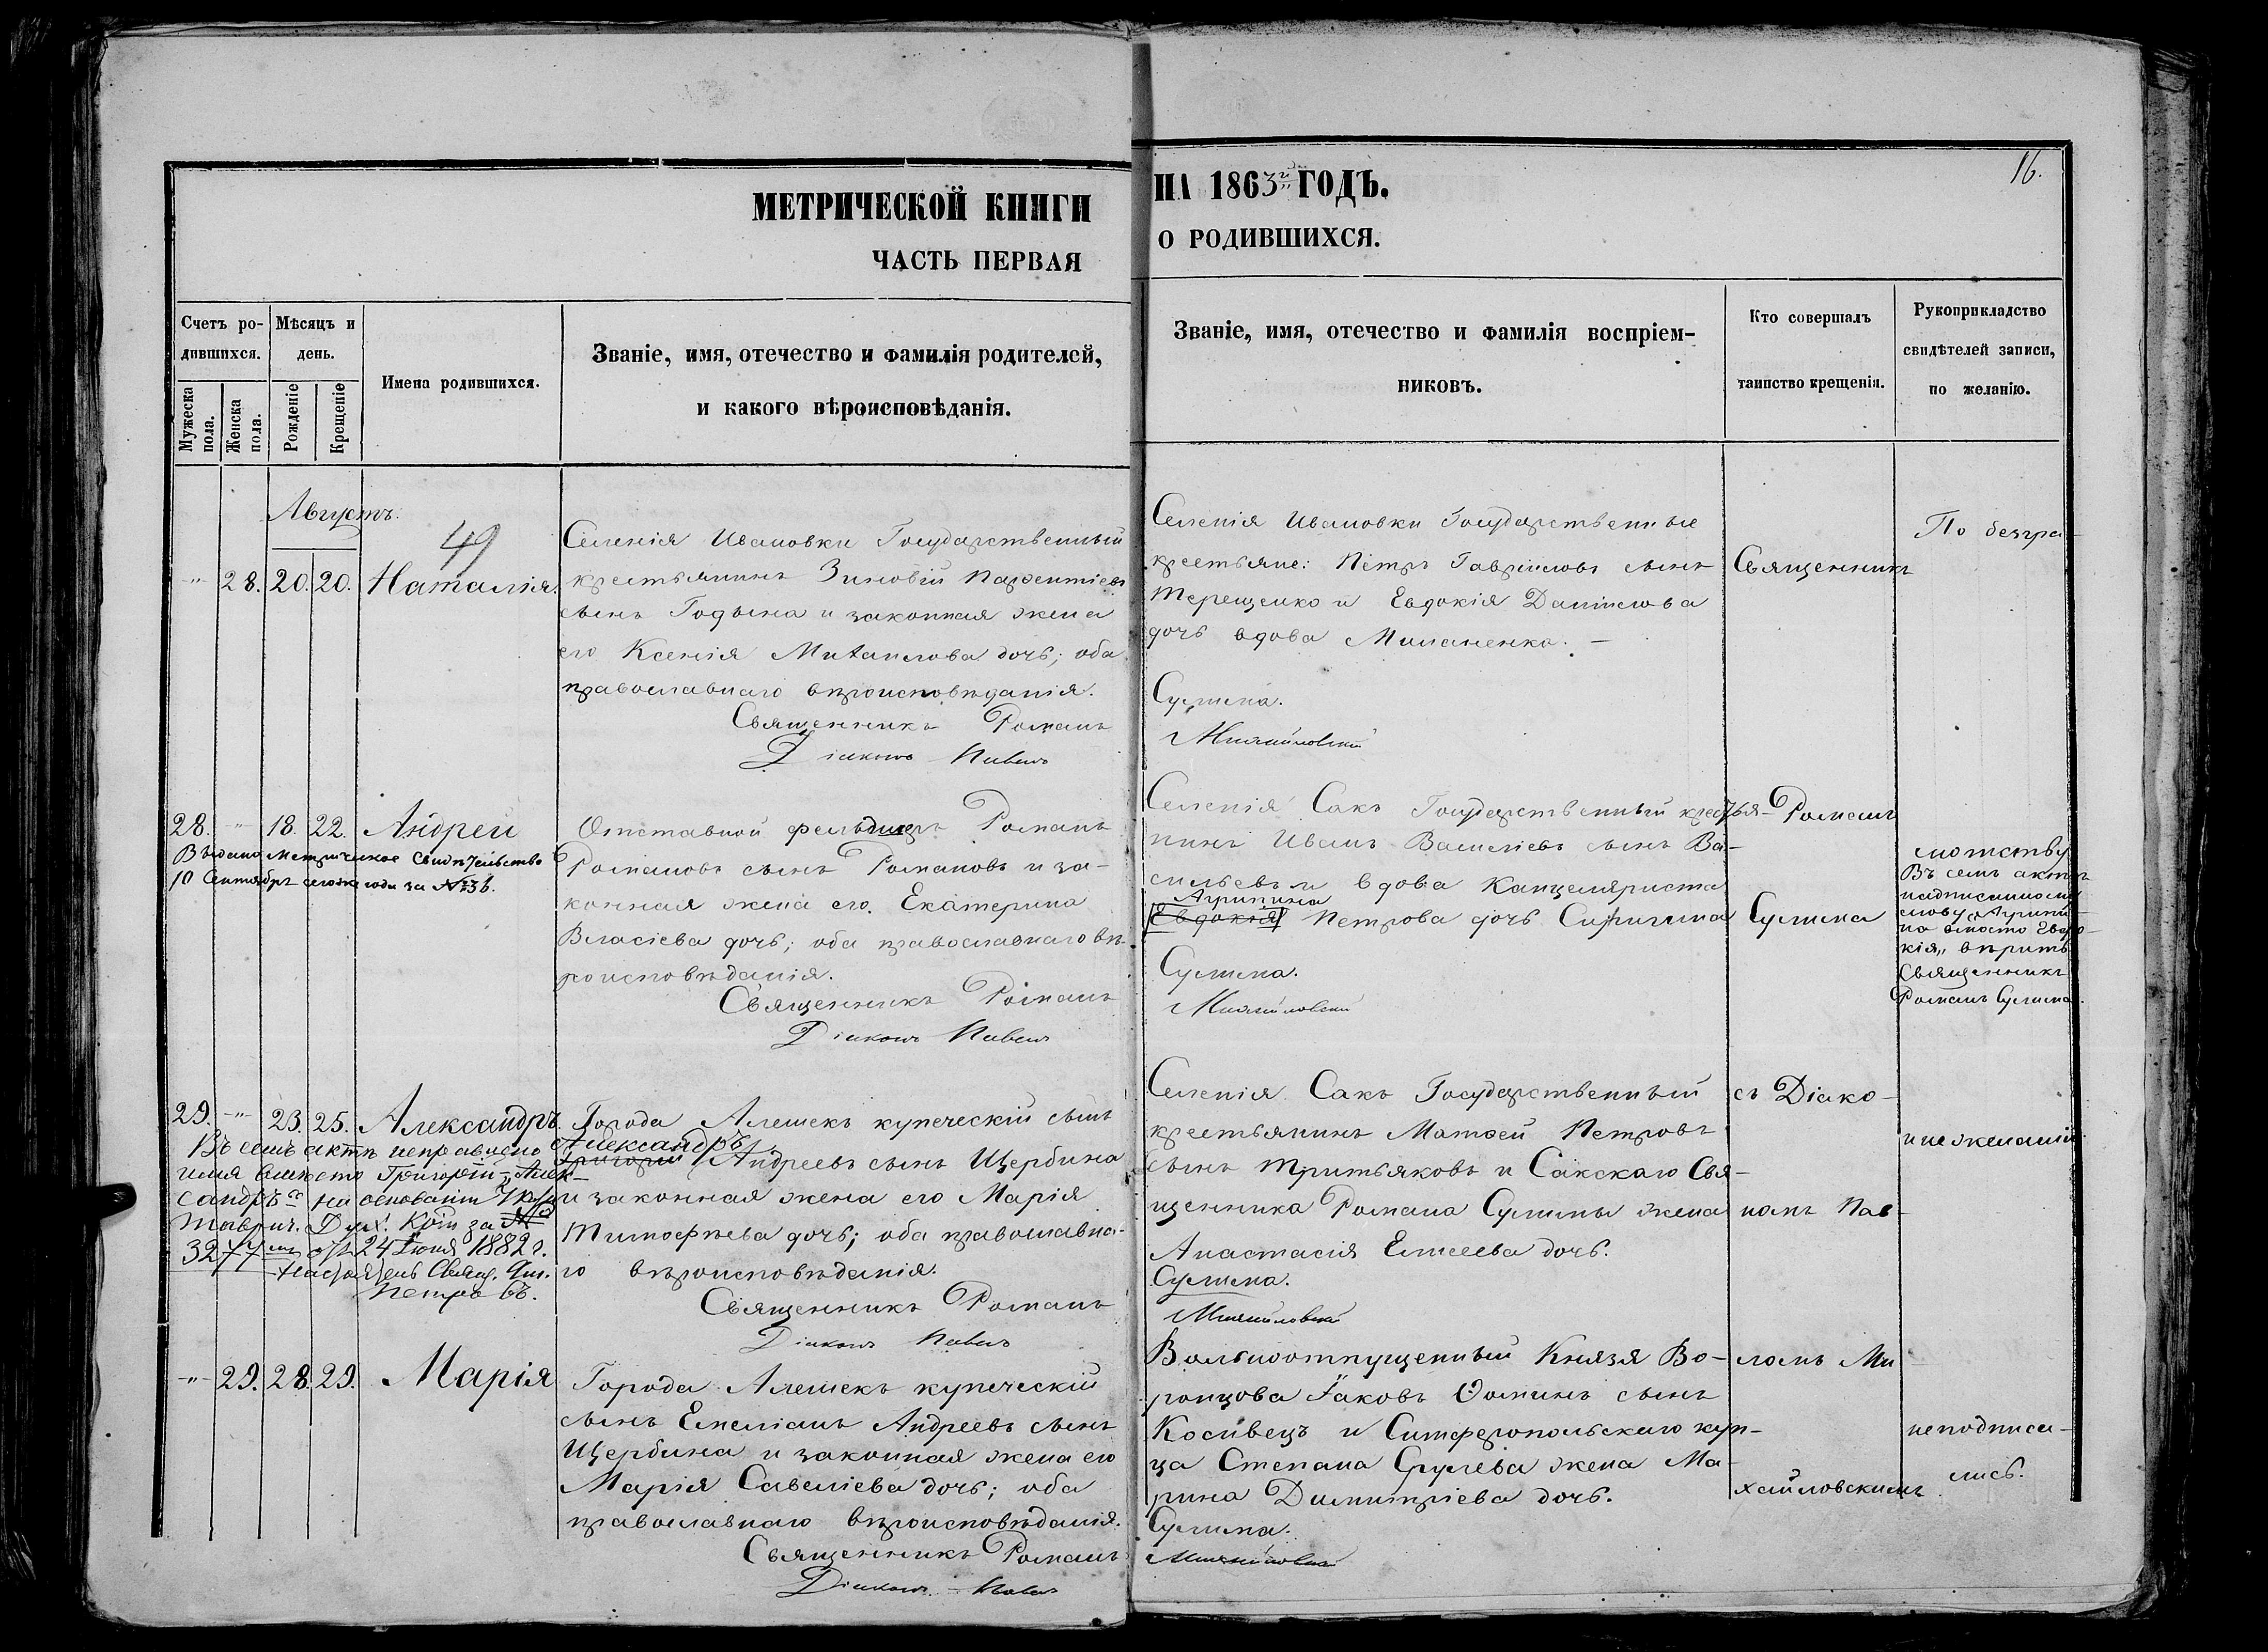 16.
МЕТРИЧЕСКОЙ КНИГИ НА 1863й ГОДЪ.
ЧАСТЬ ПЕРВАЯ О РОДИВШИХСЯ.
Счетъ ро-
дившихся.
Мужеска
пола.
Женска
пола.
Мѣсяцъ и
день.
Рожденіе
Крещеніе
Имена родившихся.
Званіе, имя, отечество и фамилія родителей,
и какого вѣроисповѣданія.
Званіе, имя, отечество и фамилія воспріем-
никовъ.
Кто совершалъ
таинство крещенія.
Рукоприкладство
свидѣтелей записи,
по желанію.
Августъ.
49
-"- 28. 20. 20. Наталія.
Селенія Ивановки Государственный
крестьянинъ Зиновій Парѳентіевъ
сынъ Годына и законная жена
его Ксенія Михаилова дочь; оба
православнаго вѣроисповѣданія.
Священникъ Романъ
Діаконъ Павелъ
Селенія Ивановки Государственные
крестьяне: Петръ Гавріиловъ сынъ
Терещенко и Евдокія Даніилова
дочь вдова Миланенко. —
Сулима.
Михайловскій
Священникъ
По безгра-
28. -"- 18. 22. Андрей
Выдано метрическое свидѣтельство
10 Сентября сего же года за №36.
Отставной фельдшеръ Романъ
Романовъ сынъ Романовъ и за-
конная жена его Екатерина
Власіева дочь; оба православнаго вѣ-
роисповѣданія.
Священникъ Романъ
Діаконъ Павелъ
Селенія Сакъ Государственный крестья-
нинъ Иванъ Василіевъ сынъ Ва-
сильевъ и вдова Канцеляриста
Агрипина
Евдокія Петрова дочь
Сулима.
Михайловскій
Романъ
Сулима
мотству
Въ семъ актѣ
надписанному
слову „Агрипи-
на вмѣсто Евдо-
кія„ вѣрить
Священникъ
Романъ Сулима.
29. -"- 23. 25. Александръ.
Въ семъ актѣ неправильно
имя вмѣсто Григорій „Алек-
сандръ" на основаніи Указа
Таврич. Дух. Кон. за №
3277мъ отъ 24 Іюня 1882 г.
Настоятель Свящ.
Петровъ.
Города Алешекъ купеческій сынъ
Александръ
Григорій Андреевъ сынъ Щербина
и законная жена его Марія
Тимофѣева дочь; оба православна-
го вѣроисповѣданія.
Священникъ Романъ
Діаконъ Павелъ
Селенія Сакъ Государственный
крестьянинъ Матѳей Петровъ
сынъ Третьяковъ и Сакскаго Свя-
щенника Романа Сулимы жена
Анастасія Елисеева дочь.
Сулима.
Михайловскій
съ Діако-
номъ Пав-
и не желанію
-"- 29. 28. 29. Марія
Города Алешекъ купеческій
сынъ Емеліанъ Андреевъ сынъ
Щербина и законная жена его
Марія Савеліева дочь; оба
православнаго вѣроисповѣданія.
Священникъ Романъ
Діаконъ Павелъ
Вольноотпущенный Князя Во-
ронцова Іаковъ Ѳоминъ сынъ
Косивецъ и Симферопольскаго куп-
ца Степана Сргулева жена Ма-
рина Димитріева дочь.
Сулима.
Михайловскій
ломъ Ми-
хайловскимъ
неподписа-
лись.